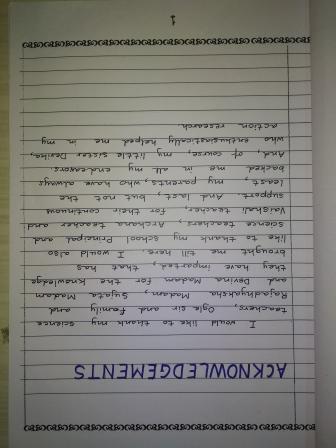 ACKNOWLEDGEMENTS
I would like to thank my science
teachers, Ogle sir and family and
Rajadhyaksha Madam, Sujata Madam
and Devina Madam for the knowledge
they have imparted, that has
brought me till here. I would also
like to thank my school Principal and
science teachers, Archana teacher and
Vaishali teacher, for their continuous
support. And last, but not the
least my parents, who have always
backed me in all my endeavors.
And, of course, my little sister Devina,
who enthusiastically helped me in my
action research.
1